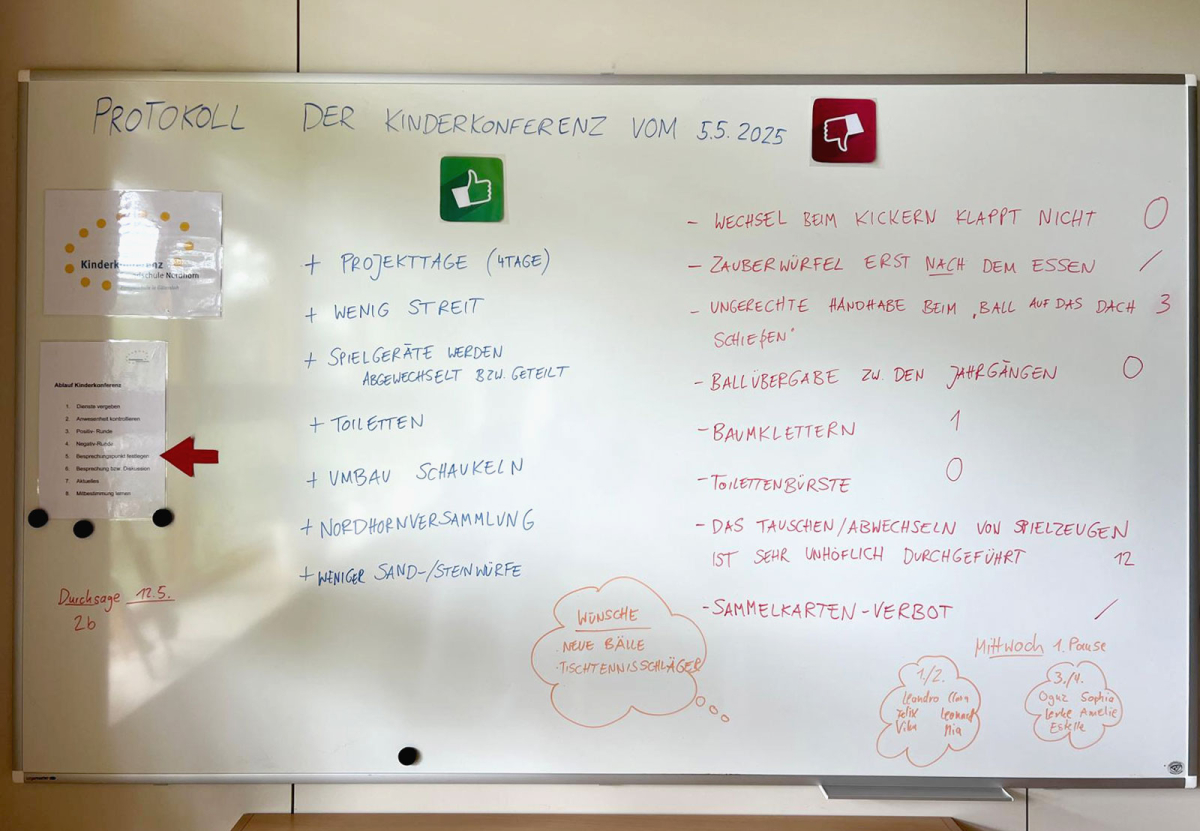 PROTOKOLL DER KINDERKONFERENZ VOM 5.5.2025
Kinderk nferenz
schule Nordhorn
Ablauf Kinderkonferenz
1. Dienste vergeben
2. Anwesenheit kontrollieren
3. Positiv- Runde
4. Negativ-Runde
5. Besprechungspunkt festlegen
6. Besprechung bzw. Diskussion
7. Aktuelles
8. Mitbestimmung lernen
Durchsage 12.5.
2b
+ PROJEKTTAGE (4TAGE)
+ WENIG STREIT
+ SPIELGERÄTE WERDEN
ABGEWECHSELT BZW. GETEILT
+ TOILETTEN
+ UMBAU SCHAUKELN
+ NORDHORNVERSAMMLUNG
+ WENIGER SAND-/STEINWÜRFE
WÜNSCHE
· NEUE BÄLLE
· TISCHTENNISSCHLÄGER
- WECHSEL BEIM KICKERN KLAPPT NICHT 0
- ZAUBERWÜRFEL ERST NACH DEM ESSEN /
- UNGERECHTE HANDHABE BEIM „BALL AUF DAS DACH 3
SCHIEßEN"
- BALLÜBERGABE ZW. DEN JAHRGÄNGEN 0
- BAUMKLETTERN 1
- TOILETTENBÜRSTE 0
- DAS TAUSCHEN/ABWECHSELN VON SPIELZEUGEN
IST SEHR UNHÖFLICH DURCHGEFÜHRT 12
- SAMMELKARTEN-VERBOT /
Mittwoch 1. Pause
1./2.
Leandro Clara
Felix
Mia
3./4.
Oguz Sophia
Lenke Amelie
Estelle